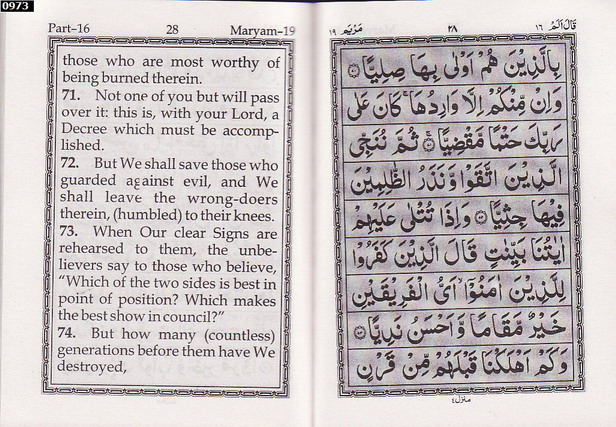 0973
Part-16 28 Maryam-19
those who are most worthy of
being burned therein.
71. Not one of you but will pass
over it: this is, with your Lord, a
Decree which must be accomp-
lished.
72. But We shall save those who
guarded against evil, and We
shall leave the wrong-doers
therein, (humbled) to their knees.
73. When Our clear Signs are
rehearsed to them, the unbe-
lievers say to those who believe,
“Which of the two sides is best in
point of position? Which makes
the best show in council?”
74. But how many (countless)
generations before them have We
destroyed,
قَالَ اَلَمْ ١٦ ٢٨ مَرْيَم ١٩
بِالَّذِيْنَ هُمْ اَوْلٰى بِهَا صِلِيًّا ۝
وَاِنْ مِّنْكُمْ اِلَّا وَارِدُهَا ۚ كَانَ عَلٰى
رَبِّكَ حَتْمًا مَّقْضِيًّا ۝ ثُمَّ نُنَجِّى
الَّذِيْنَ اتَّقَوْا وَّنَذَرُ الظّٰلِمِيْنَ
فِيْهَا جِثِيًّا ۝ وَاِذَا تُتْلٰى عَلَيْهِمْ
اٰيٰتُنَا بَيِّنٰتٍ قَالَ الَّذِيْنَ كَفَرُوْا
لِلَّذِيْنَ اٰمَنُوْٓا ۙ اَىُّ الْفَرِيْقَيْنِ
خَيْرٌ مَّقَامًا وَّاَحْسَنُ نَدِيًّا ۝
وَكَمْ اَهْلَكْنَا قَبْلَهُمْ مِّنْ قَرْنٍ
منزل ٤